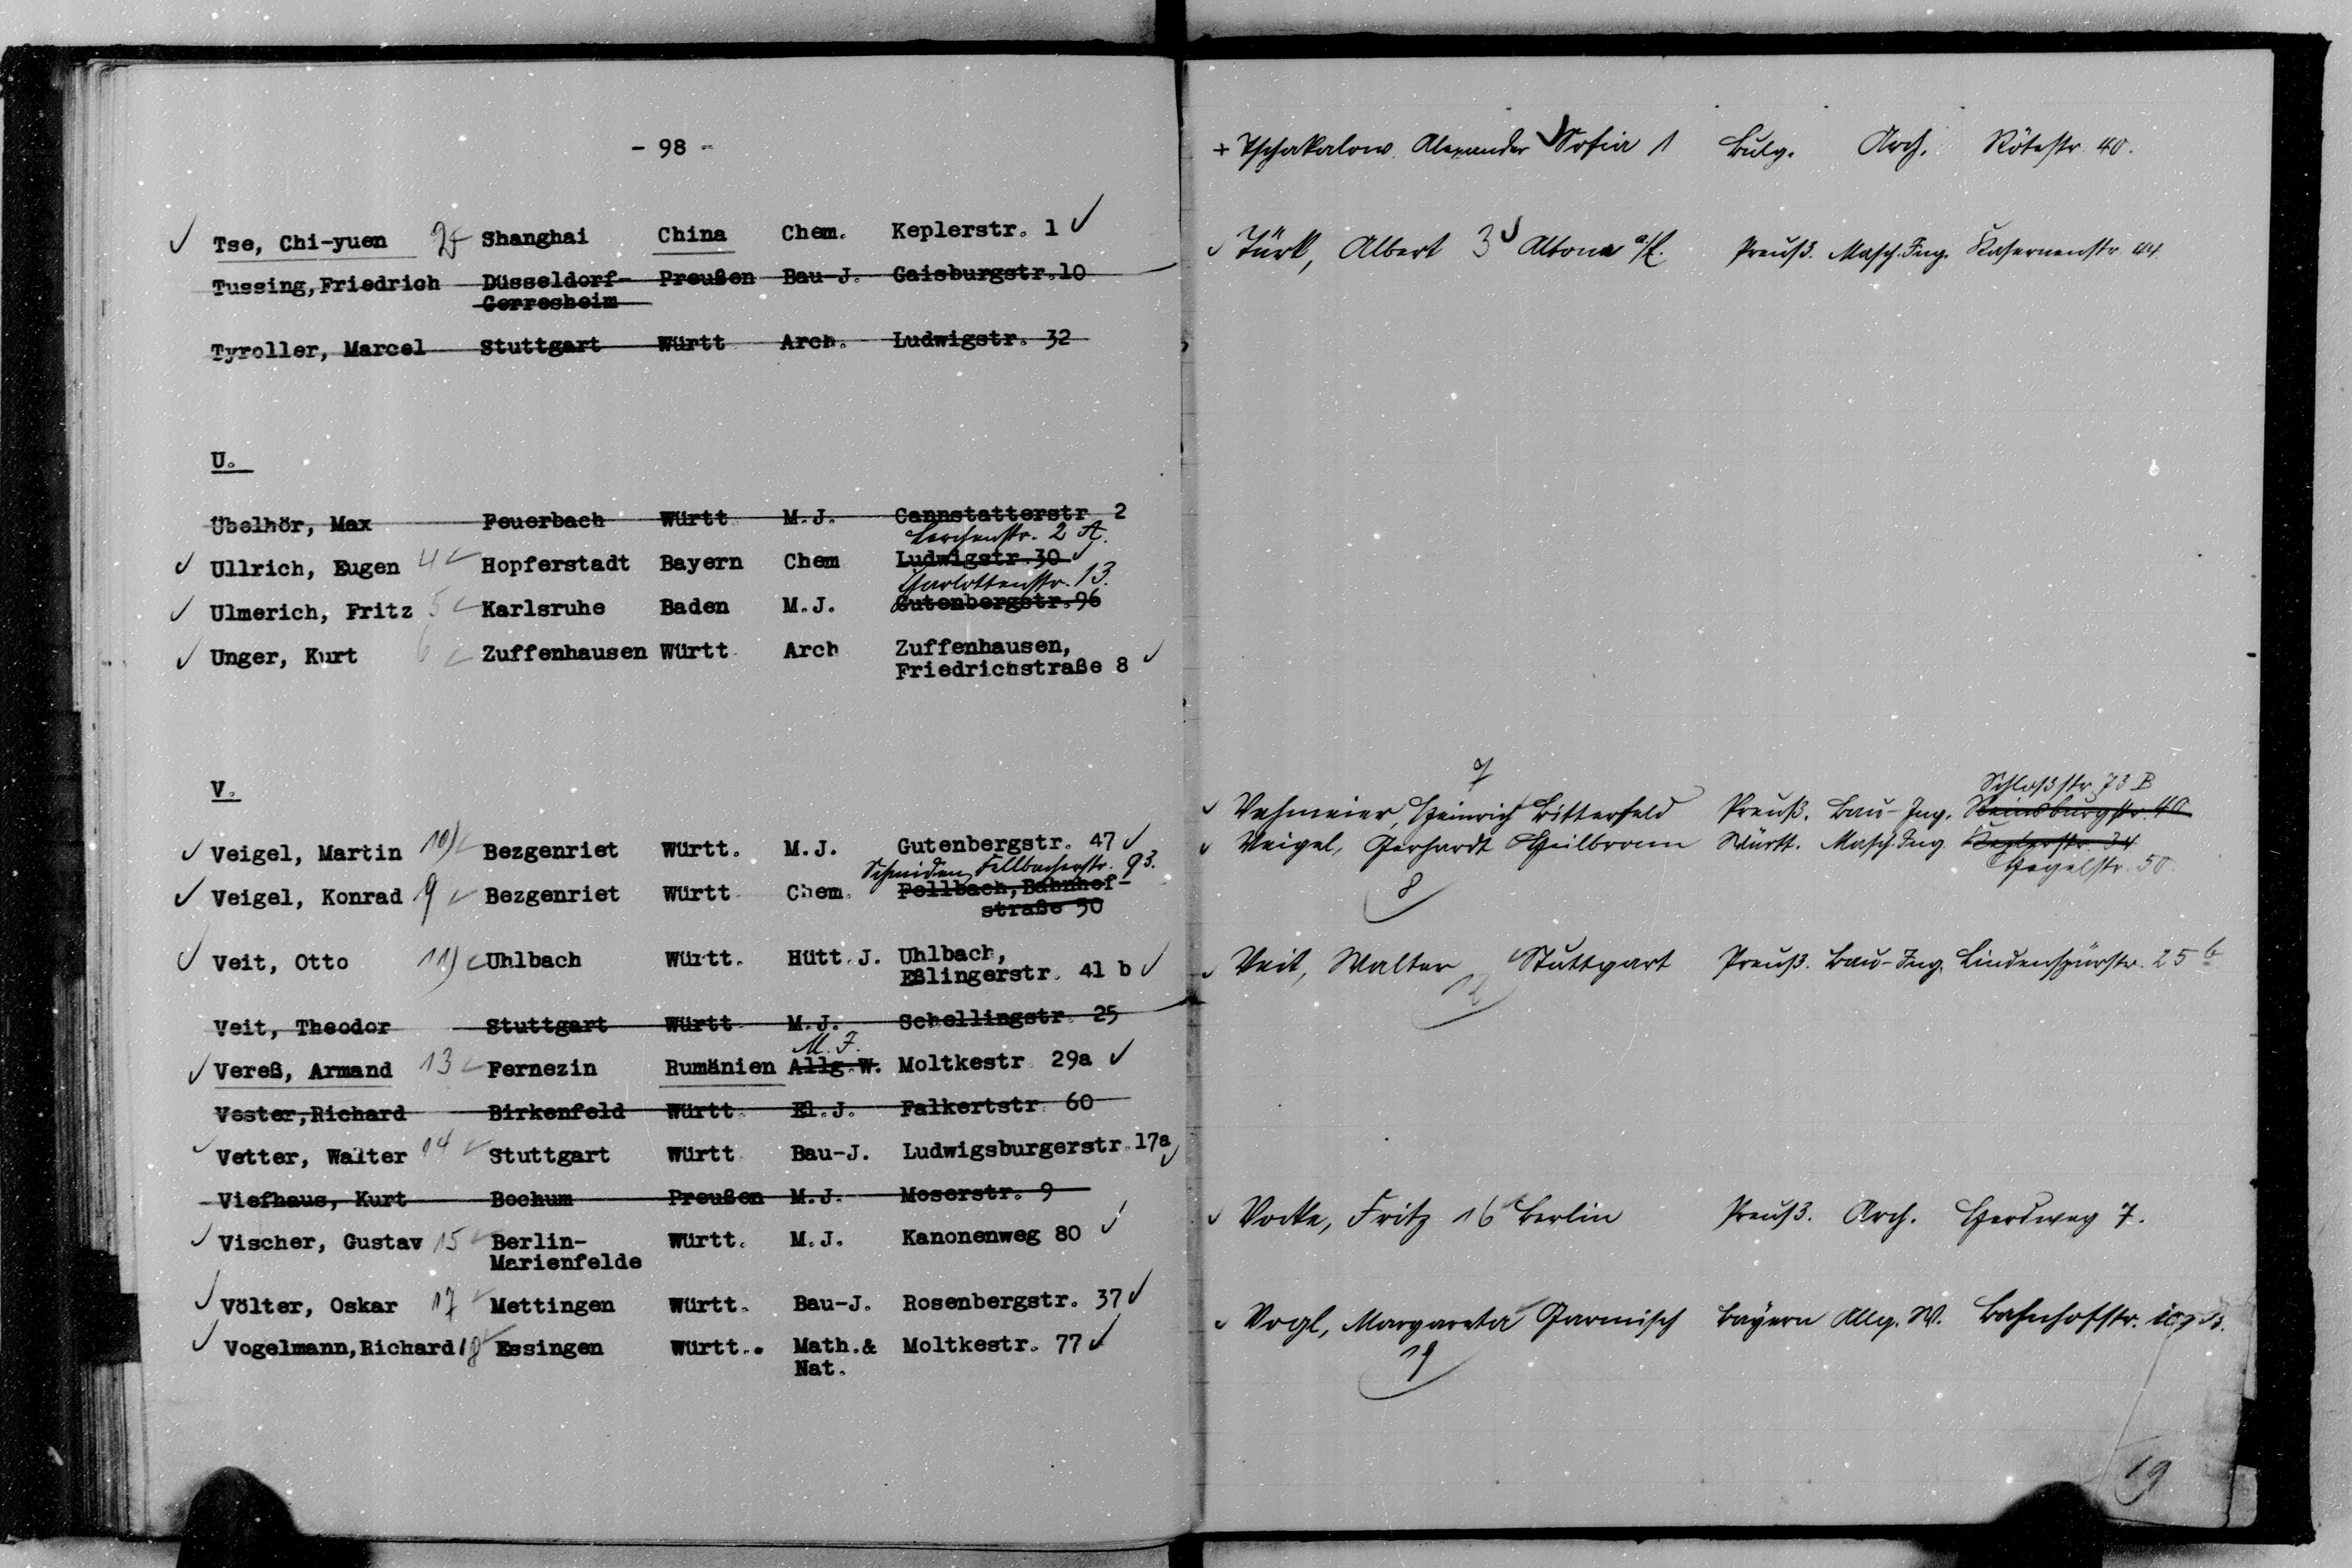 - 98 -
✓ Tse, Chi-yuen 2 Shanghai China Chem. Keplerstr. 1 ✓
Tussing, Friedrich Düsseldorf- Preußen Bau-J. Gaisburgstr. 10
Gerresheim
Tyroller, Marcel Stuttgart Württ Arch. Ludwigstr. 32
U.
Übelhör, Max Feuerbach Württ M.J. Cannstatterstr 2
Lerchenstr. 2 A.
✓ Ullrich, Eugen 4 Hopferstadt Bayern Chem Ludwigstr. 30 ✓
Charlottenstr. 13.
✓ Ulmerich, Fritz 5 Karlsruhe Baden M.J. Gutenbergstr. 96
✓ Unger, Kurt 6 Zuffenhausen Württ Arch Zuffenhausen,
Friedrichstraße 8 ✓
V.
✓ Veigel, Martin 10) Bezgenriet Württ. M.J. Gutenbergstr. 47 ✓
Schmiden, Fellbacherstr. 93.
✓ Veigel, Konrad 9 Bezgenriet Württ Chem. Fellbach, Bahnhof-
straße 30
✓ Veit, Otto 11) Uhlbach Württ. Hütt. J. Uhlbach,
Eßlingerstr. 41 b ✓
Veit, Theodor Stuttgart Württ M.J. Schellingstr. 25
M. J.
✓ Vereß, Armand 13 Fernezin Rumänien Allg. W. Moltkestr 29a ✓
Vester, Richard Birkenfeld Württ. El.J. Falkertstr 60
✓ Vetter, Walter 14 Stuttgart Württ Bau-J. Ludwigsburgerstr. 17a ✓
Viefhaus, Kurt Bochum Preußen M.J. Moserstr. 9
✓ Vischer, Gustav 15 Berlin- Württ. M.J. Kanonenweg 80 ✓
Marienfelde
✓ Völter, Oskar 17 Mettingen Württ. Bau-J. Rosenbergstr. 37 ✓
✓ Vogelmann, Richard 18 Essingen Württ.. Math.& Moltkestr. 77 ✓
Nat.
+ Tschakalow Alexander Sofia 1 Bulg. Arch. Rötestr. 40.
✓ Türk, Albert 3 Altona a/E. Preuß. Masch. Ing. Kasernenstr 44
7 Schloßstr. 73 B
✓ Vehmeier, Heinrich Bitterfeld Preuß. Bau-Ing. Reinsburgstr. 40
✓ Veigel, Gerhardt Heilbronn Württ. Masch. Ing. Keplerstr. 34
8 Hegelstr. 50.
✓ Veit, Walter Stuttgart Preuß. Bau-Ing. Lindenspürstr. 25 b
12
✓ Vocke, Fritz 16 Berlin Preuß. Arch. Herdweg 7.
✓ Vogl, Margareta Garmisch Bayern Allg. W. Bahnhofstr.
19
19